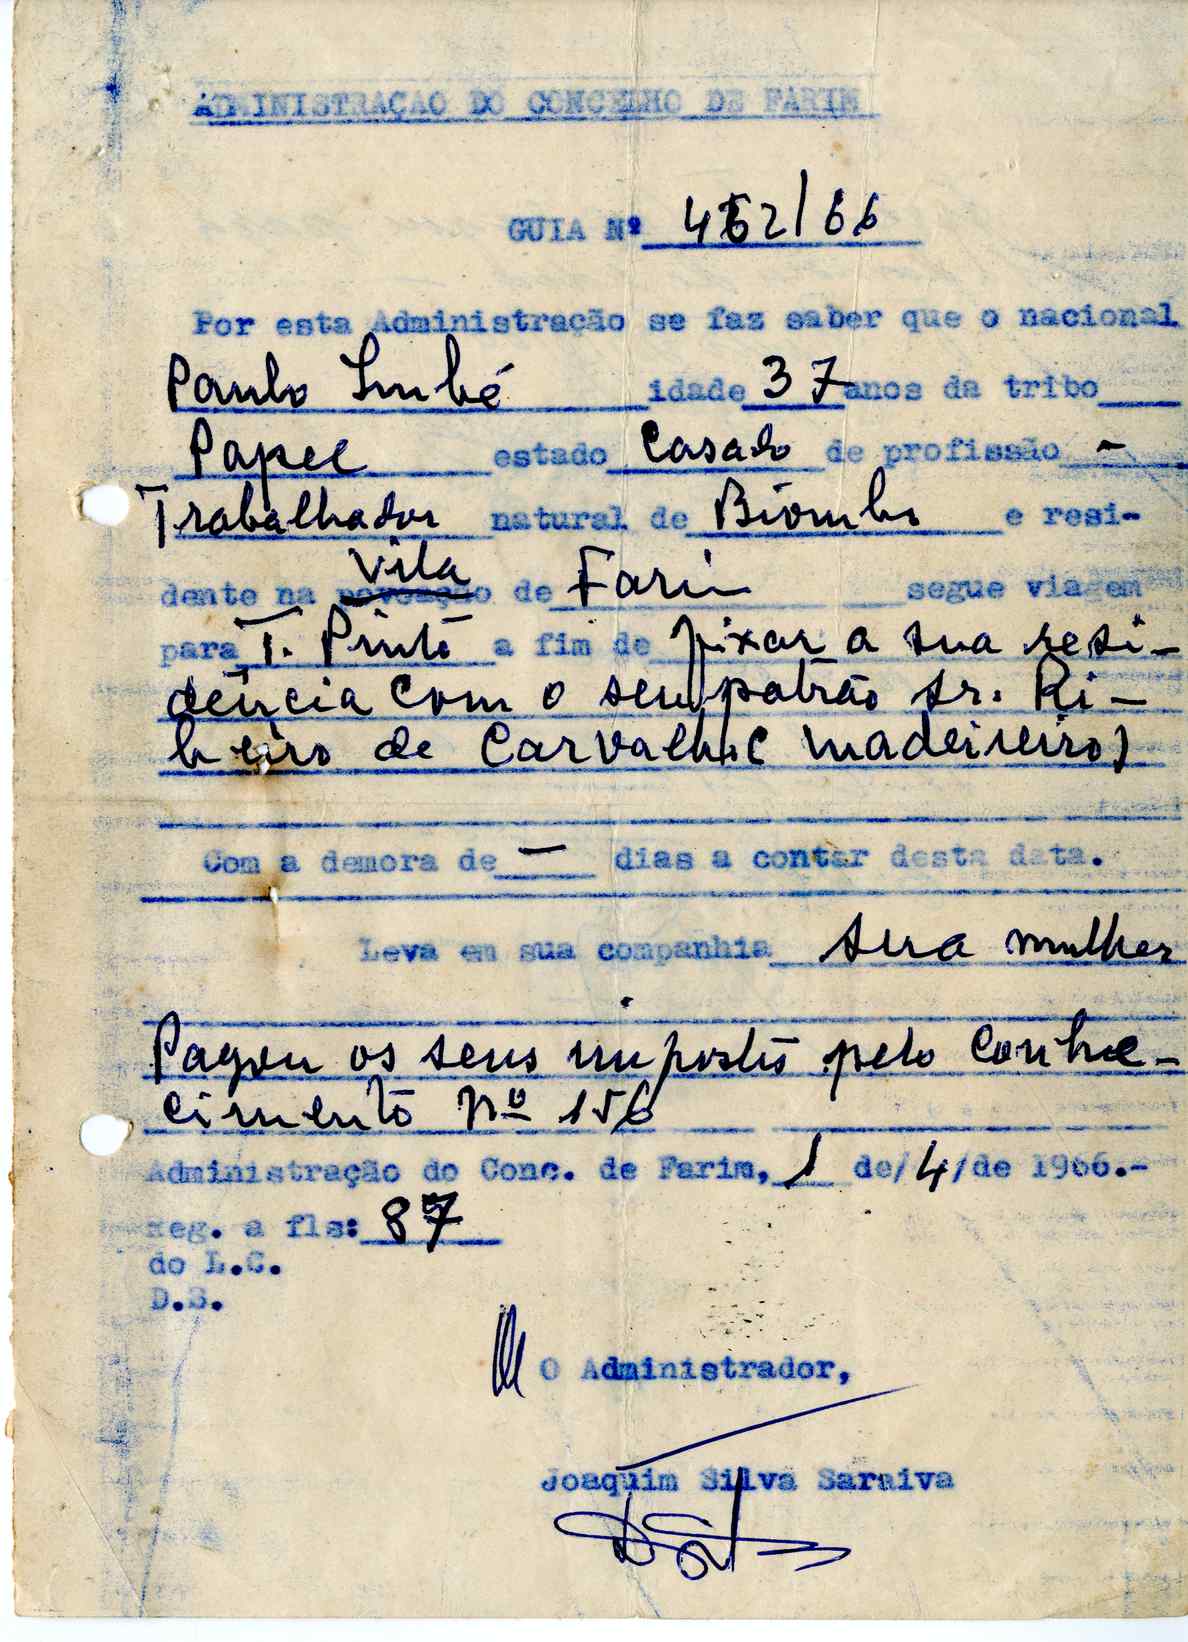 ADMINISTRAÇAO DO CONCELHO DE FARIM
GUIA Nº 462/66
Por esta Administração se faz saber que o nacional
Paulo idade 37 anos da tribo
Papel estado Casado de profissão -
Trabalhador natural de Biombo e resi-
Vila
dente na povoação de Farim segue viagem
para T. Pinto a fim de fixar a sua resi-
dência com o seu patrão Sr. Ri-
beiro de Carvalho (madeireiro)
Com a demora de - dias a contar desta data.
Leva em sua companhia sua mulher
Pagou os seus impostos pelo conhe-
cimento nº 156
Administração do Conc. de Farim, 1 de/4/de 1966.-
Reg. a fls: 87
do L.C.
D.S.
O Administrador,
Joaquim Silva Saraiva